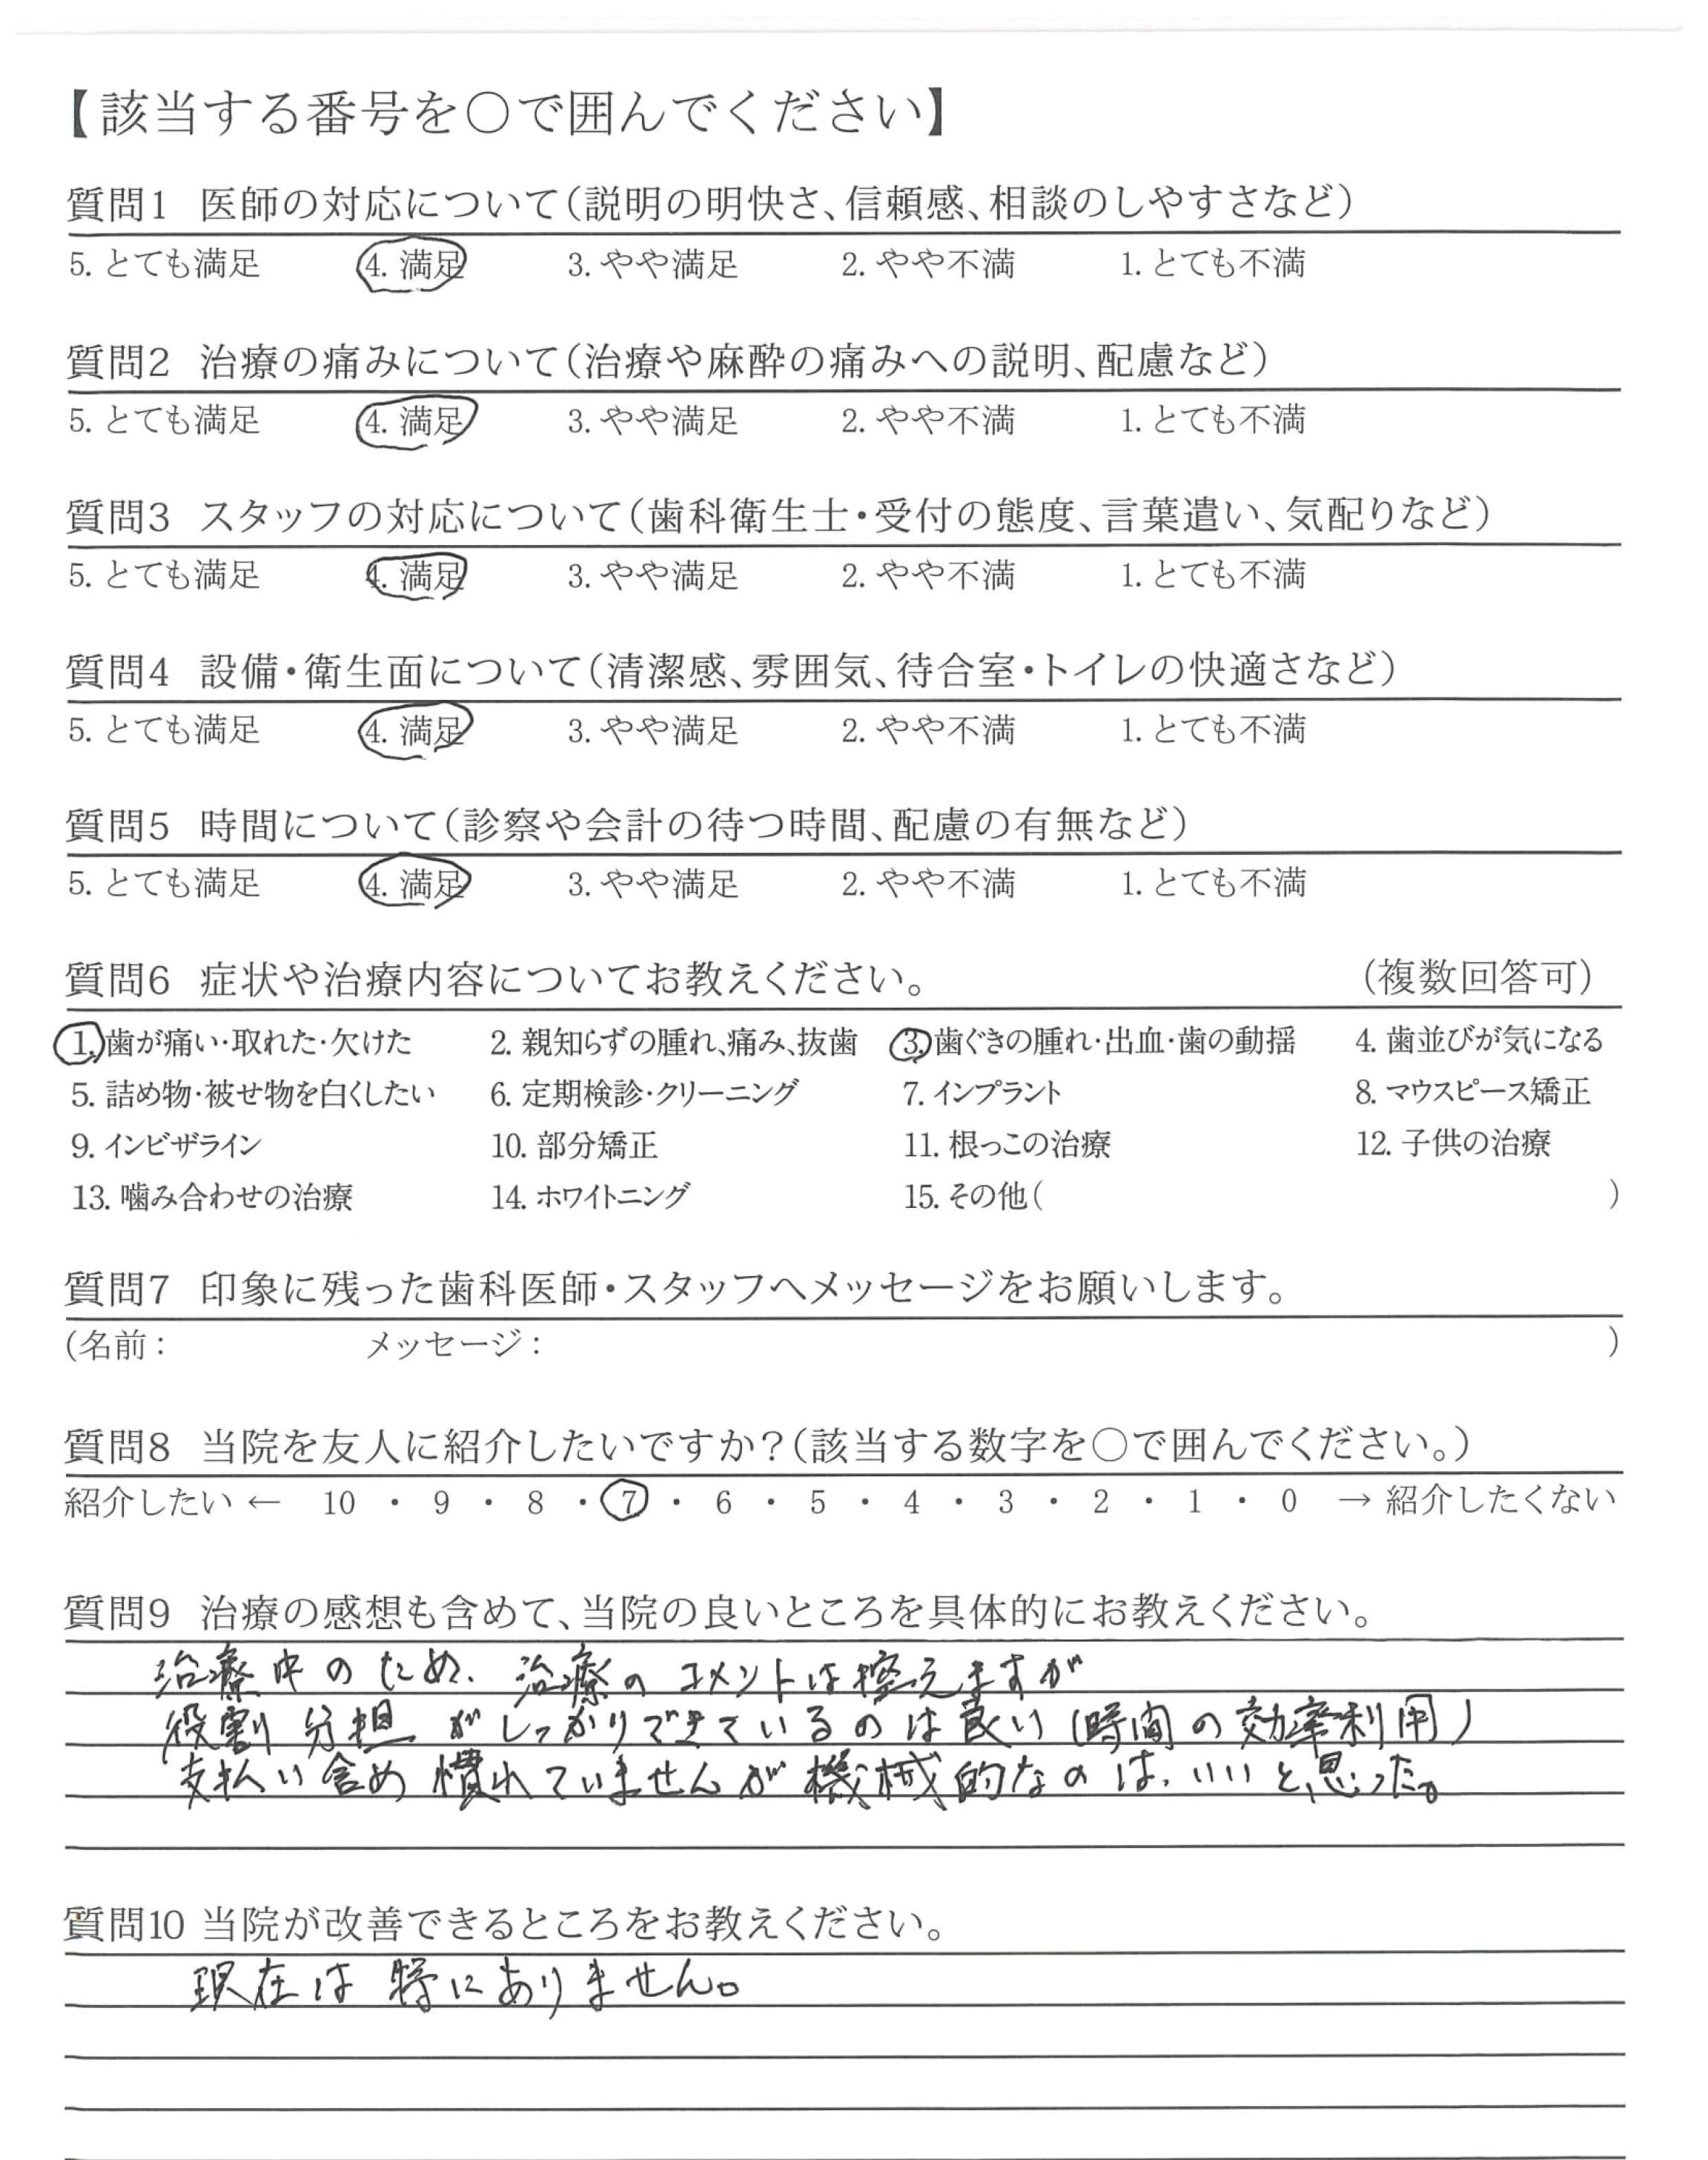 【該当する番号を○で囲んでください】
質問1 医師の対応について(説明の明快さ、信頼感、相談のしやすさなど)
5. とても満足 4. 満足 3. やや満足 2. やや不満 1. とても不満
質問2 治療の痛みについて(治療や麻酔の痛みへの説明、配慮など)
5. とても満足 4. 満足 3. やや満足 2. やや不満 1. とても不満
質問3 スタッフの対応について(歯科衛生士・受付の態度、言葉遣い、気配りなど)
5. とても満足 4. 満足 3. やや満足 2. やや不満 1. とても不満
質問4 設備・衛生面について(清潔感、雰囲気、待合室・トイレの快適さなど)
5. とても満足 4. 満足 3. やや満足 2. やや不満 1. とても不満
質問5 時間について(診察や会計の待つ時間、配慮の有無など)
5. とても満足 4. 満足 3. やや満足 2. やや不満 1. とても不満
質問6 症状や治療内容についてお教えください。 (複数回答可)
1. 歯が痛い・取れた・欠けた 2. 親知らずの腫れ、痛み、抜歯 3. 歯ぐきの腫れ・出血・歯の動揺 4. 歯並びが気になる
5. 詰め物・被せ物を白くしたい 6. 定期検診・クリーニング 7. インプラント 8. マウスピース矯正
9. インビザライン 10. 部分矯正 11. 根っこの治療 12. 子供の治療
13. 噛み合わせの治療 14. ホワイトニング 15. その他( )
質問7 印象に残った歯科医師・スタッフへメッセージをお願いします。
(名前: メッセージ: )
質問8 当院を友人に紹介したいですか?(該当する数字を○で囲んでください。)
紹介したい ← 10 ・ 9 ・ 8 ・ 7 ・ 6 ・ 5 ・ 4 ・ 3 ・ 2 ・ 1 ・ 0 → 紹介したくない
質問9 治療の感想も含めて、当院の良いところを具体的にお教えください。
治療中のため、治療のコメントは控えますが
役割分担がしっかりできているのは良い(時間の効率利用)
支払い含め慣れていませんが機械的なのは、いいと思った。
質問10 当院が改善できるところをお教えください。
現在は特にありません。